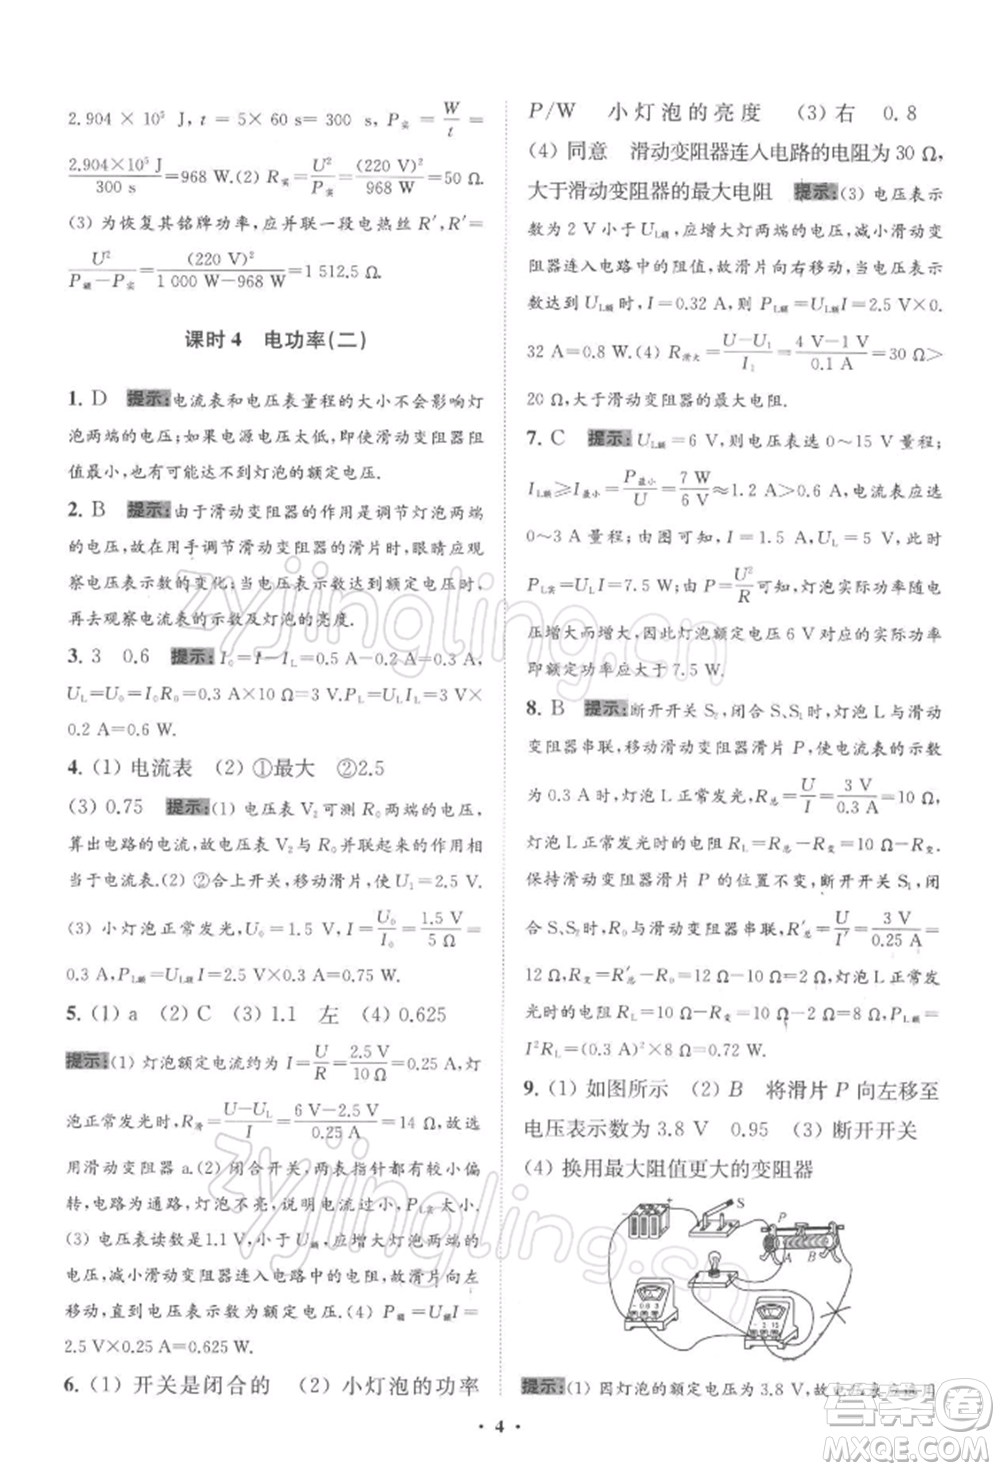 2.904 × 10⁵ J, t = 5× 60 s= 300 s, P实 = W/t =
2.904×10⁵ J/300 s = 968 W. (2) R实 = U²/P实 = (220 V)²/968 W = 50 Ω.
(3) 为恢复其铭牌功率,应并联一段电热丝 R′, R′ =
U²/(P额 − P实) = (220 V)²/(1 000 W−968 W) = 1 512.5 Ω.
课时 4 电功率(二)
1. D 提示:电流表和电压表量程的大小不会影响灯
泡两端的电压;如果电源电压太低,即使滑动变阻器阻
值最小,也有可能达不到灯泡的额定电压.
2. B 提示:由于滑动变阻器的作用是调节灯泡两端
的电压,故在用手调节滑动变阻器的滑片时,眼睛应观
察电压表示数的变化;当电压表示数达到额定电压时,
再去观察电流表的示数及灯泡的亮度.
3. 3 0.6 提示:I₀=I−I_L=0.5 A−0.2 A=0.3 A,
U_L=U₀=I₀R₀=0.3 A×10 Ω=3 V. P_L=U_L I_L=3 V×
0.2 A=0.6 W.
4. (1) 电流表 (2) ①最大 ②2.5
(3) 0.75 提示:(1) 电压表 V₂ 可测 R₀ 两端的电压,
算出电路的电流,故电压表 V₂ 与 R₀ 并联起来的作用相
当于电流表.(2) ②合上开关,移动滑片,使 U₁=2.5 V.
(3) 小灯泡正常发光,U₀=1.5 V, I=U₀/I₀=1.5 V/5 Ω=
0.3 A,P_L额=U_L额 I=2.5 V×0.3 A=0.75 W.
5. (1) a (2) C (3) 1.1 左 (4) 0.625
提示:(1) 灯泡额定电流约为 I=U/R=2.5 V/10 Ω=0.25 A,灯
泡正常发光时,R滑=(U−U_L)/I=(6 V−2.5 V)/0.25 A=14 Ω,故选
用滑动变阻器 a.(2) 闭合开关,两表指针均有明显偏
转,电路为通路,灯泡不亮,说明灯泡的 P_L实太小.
(3) 电压表读数是 1.1 V,小于 U额,应增大灯泡两端的
电压,减小滑动变阻器连入电路中的电阻,故滑片应向左
移动,直到电压表示数为额定电压.(4) P额=U额I=
2.5 V×0.25 A=0.625 W.
6. (1) 开关是闭合的 (2) 小灯泡的功率
P/W 小灯泡的亮度 (3) 右 0.8
(4) 同意 滑动变阻器连入电路的电阻为 30 Ω,
大于滑动变阻器的最大电阻 提示:(3) 电压表示
数为 2 V 小于 U_L额,应增大灯两端的电压,减小滑动变
阻器连入电路中的阻值,故滑片向右移动,当电压表示
数达到 U_L额时,I=0.32 A,则 P_L额=U_L额I=2.5 V×0.
32 A=0.8 W.(4) R滑大=(U−U₁)/I₁=(4 V−1 V)/0.1 A=30 Ω>
20 Ω,大于滑动变阻器的最大电阻.
7. C 提示:U_L额=6 V,则电压表选 0～15 V 量程;
I_L额≥I最小=P最小/U=7 W/6 V≈1.2 A>0.6 A,电流表应选
0～3 A 量程;由图可知,电流表示数 I=1.5 A,U_L=5 V,此时
P_L实=U_L I=7.5 W;由 P=U²/R可知,灯泡实际功率随电
压增大而增大,因此灯泡额定电压 6 V 对应的实际功率
即额定功率应大于 7.5 W.
8. B 提示:断开开关 S₂,闭合 S、S₁时,灯泡 L 与滑动
变阻器串联,移动变阻器滑片 P,使电流表的示数
为 0.3 A 时,灯泡 L 正常发光,R总=U/I=3 V/0.3 A=10 Ω,
灯泡正常发光时的电阻 R_L=R总−R变=10 Ω−R变.
保持滑动变阻器滑片 P 的位置不变,断开开关 S₁,闭
合 S、S₂时,R₀与滑动变阻器串联,R′总=U/I′=3 V/0.25 A=
12 Ω,因此 R₀=R′总−R变=12 Ω−R变=10 Ω,解得
R变=2 Ω,R_L=10 Ω−R变=10 Ω−2 Ω=8 Ω,灯泡 L 正常发
光时电阻 R_L=10 Ω−R变=10 Ω−2 Ω=8 Ω,P_L额=
I²R_L=(0.3 A)²×8 Ω=0.72 W.
9. (1) 如图所示 (2) B 将滑片 P 向左移至
电压表示数为 3.8 V 0.95 (3) 断开开关
(4) 换用最大阻值更大的变阻器
S
P
A B
提示:(1) 因灯泡的额定电压为 3.8 V,故
• 4 •
zyjingling.cn
zyjingling.cn
答案圈
MXQE.COM